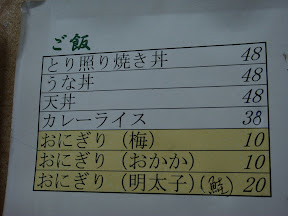 ご飯
とり照り焼き丼 48
うな丼 48
天丼 48
カレーライス 38
おにぎり（梅） 10
おにぎり（おかか） 10
おにぎり（明太子）(鮭) 20